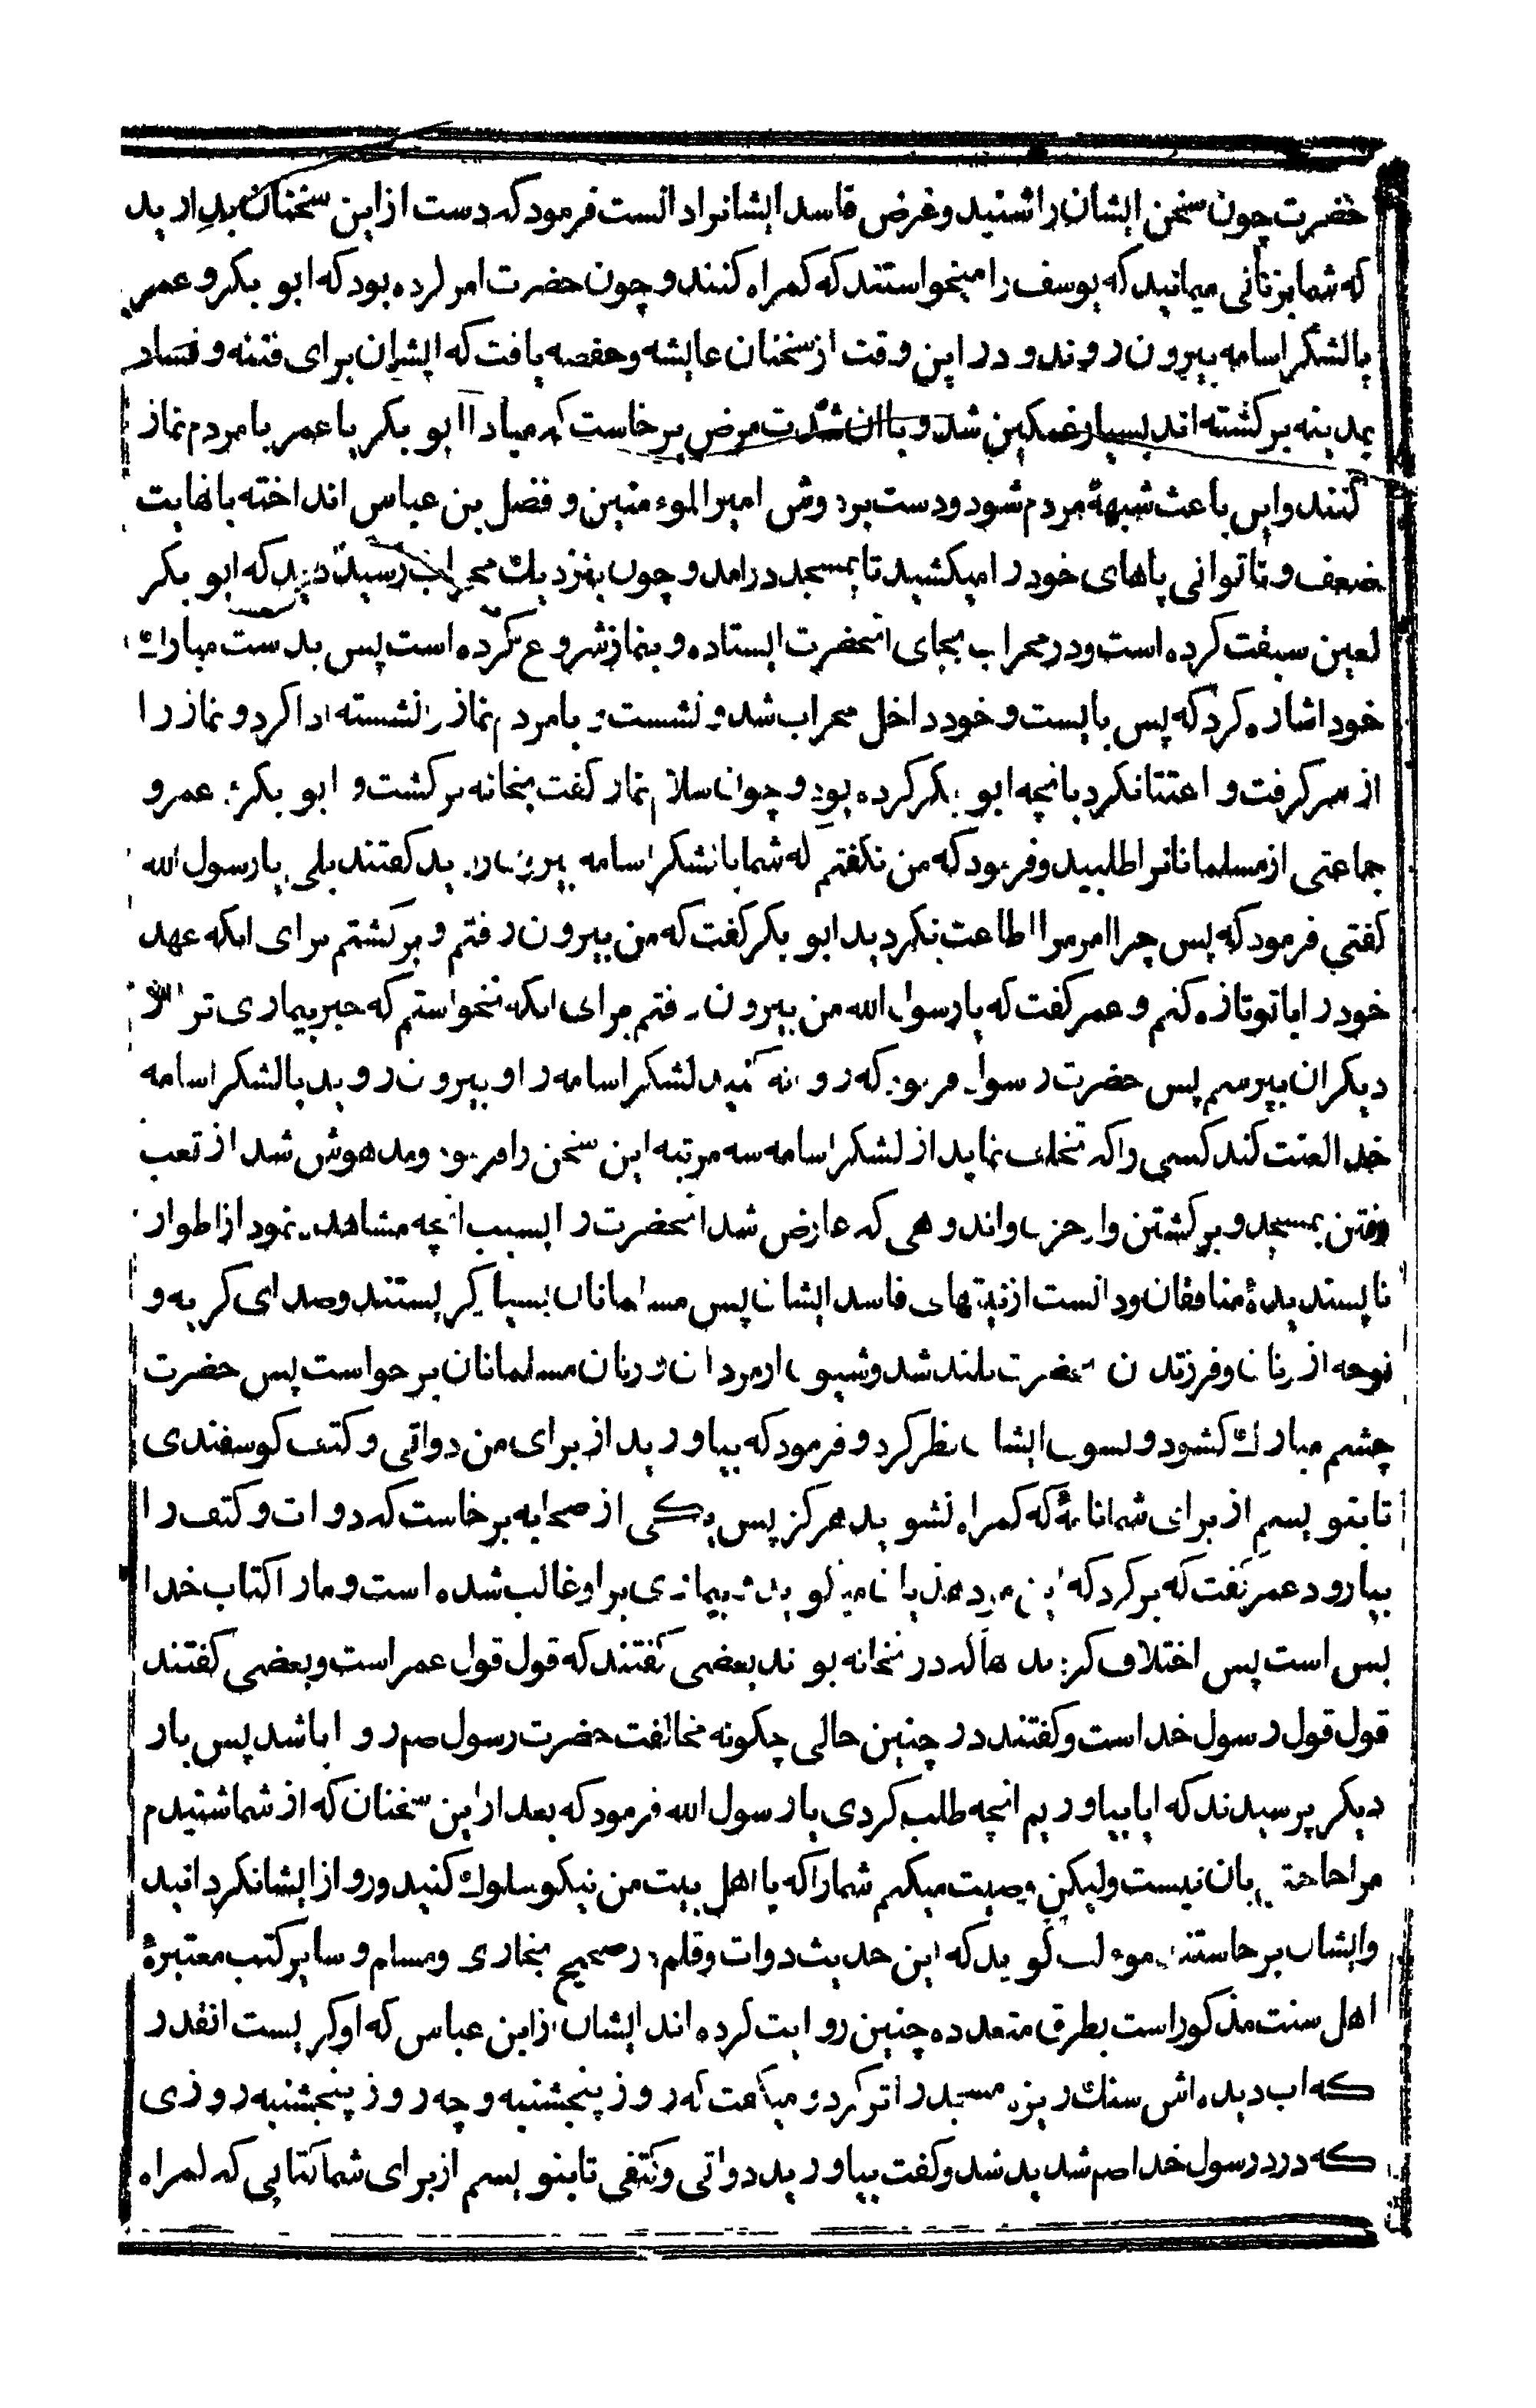 حضرت چون سخن ایشان را شنید و غرض فاسد ایشانرا دانست فرمود که دست از این سخنان بدارید
که شما بزنانی میمانید که یوسف را میخواستند که کمراه کنند و چون حضرت امر کرده بود که ابو بکر و عمر
بالشکر اسامه بیرون روند و در این وقت از سخنان عایشه و حفصه یافت که ایشان برای فتنه و فساد
بمدینه برکشته اند بسیار غمکین شد و باان شدت مرض برخاست که مبادا ابو بکر یا عمر با مردم نماز
کنند و این باعث شبههٔ مردم شود و دست بر دوش امیرالموءمنین و فضل بن عباس انداخته با نهایت
ضعف و ناتوانی پاهای خود را میکشید تا بمسجد درامد و چون بنزدیك محراب رسید دید که ابو بکر
لعین سبقت کرده است و در محراب بجای انحضرت ایستاده و بنماز شروع کرده است پس بدست مبارك
خود اشاره کرد که پس بایست و خود داخل محراب شد و نشست و با مردم نماز را نشسته ادا کرد و نماز را
از سر کرفت و اعتنا نکرد بانچه ابو بکر کرده بود و چون سلام نماز کفت بخانه برکشت و ابو بکر و عمر و
جماعتی از مسلمانانرا طلبید و فرمود که من نکفتم که شما بالشکر اسامه بیرون روید کفتند بلی یا رسول الله
کفتی فرمود که پس چرا امر مرا اطاعت نکردید ابو بکر کفت که من بیرون رفتم و برکشتم برای اینکه عهد
خود را با تو تازه کنم و عمر کفت که یا رسول الله من بیرون رفتم برای اینکه نخواستم که خبر بیماری ترا از
دیکران بپرسم پس حضرت رسول فرمود که روانه کنید لشکر اسامه را و بیرون روید بالشکر اسامه
خدا لعنت کند کسی را که تخلف نماید از لشکر اسامه سه مرتبه این سخن را فرمود و مدهوش شد از تعب
رفتن بمسجد و برکشتن و از حزن و اندوهی که عارض شد انحضرت را بسبب انچه مشاهده نمود از اطوار
ناپسندیدهٔ منافقان و دانست از نیتهای فاسد ایشان پس مسلمانان بسیار کریستند و صدای کریه و
نوحه از زنان و فرزندان انحضرت بلند شد و شیون از مردان و زنان مسلمانان برخواست پس حضرت
چشم مبارك کشود و بسوی ایشان نظر کرد و فرمود که بیاورید از برای من دواتی و کتف کوسفندی
تا بنویسم از برای شما نامهٔ که کمراه نشوید هرکز پس یکی از صحابه برخاست که دوات و کتف را
بیاورد عمر کفت که برکرد که این مرد هذیان میکوید و بیماری بر او غالب شده است و ما را کتاب خدا
بس است پس اختلاف کردند هاکه در نخانه بودند بعضی کفتند که قول قول عمر است و بعضی کفتند
قول قول رسول خداست و کفتند در چنین حالی چکونه مخالفت حضرت رسول صم روا باشد پس بار
دیکر پرسیدند که ایا بیاوریم انچه طلب کردی یا رسول الله فرمود که بعد از این سخنان که از شما شنیدم
مرا حاجتی بان نیست ولیکن وصیت میکنم شما را که با اهل بیت من نیکو سلوك کنید و رو از ایشان نکردانید
و ایشان برخاستند موءلف کوید که این حدیث دوات و قلم در صحیح بخاری و مسلم و سایر کتب معتبرهٔ
اهل سنت مذکور است بطرق متعدده چنین روایت کرده اند ایشان از ابن عباس که او کریست انقدر
که اب دیده اش سنك ریزه مسجد را تر کرد و میکفت که روز پنجشنبه و چه روز پنجشنبه روزی
که درد رسول خدا صم شدید شد و کفت بیاورید دواتی و کتفی تا بنویسم از برای شما کتابی که کمراه